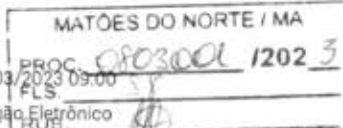 MATÕES DO NORTE / MA
PROC. 0803001 /2023
03/2023 09:00
FLS.
ão Eletrônico
RUB